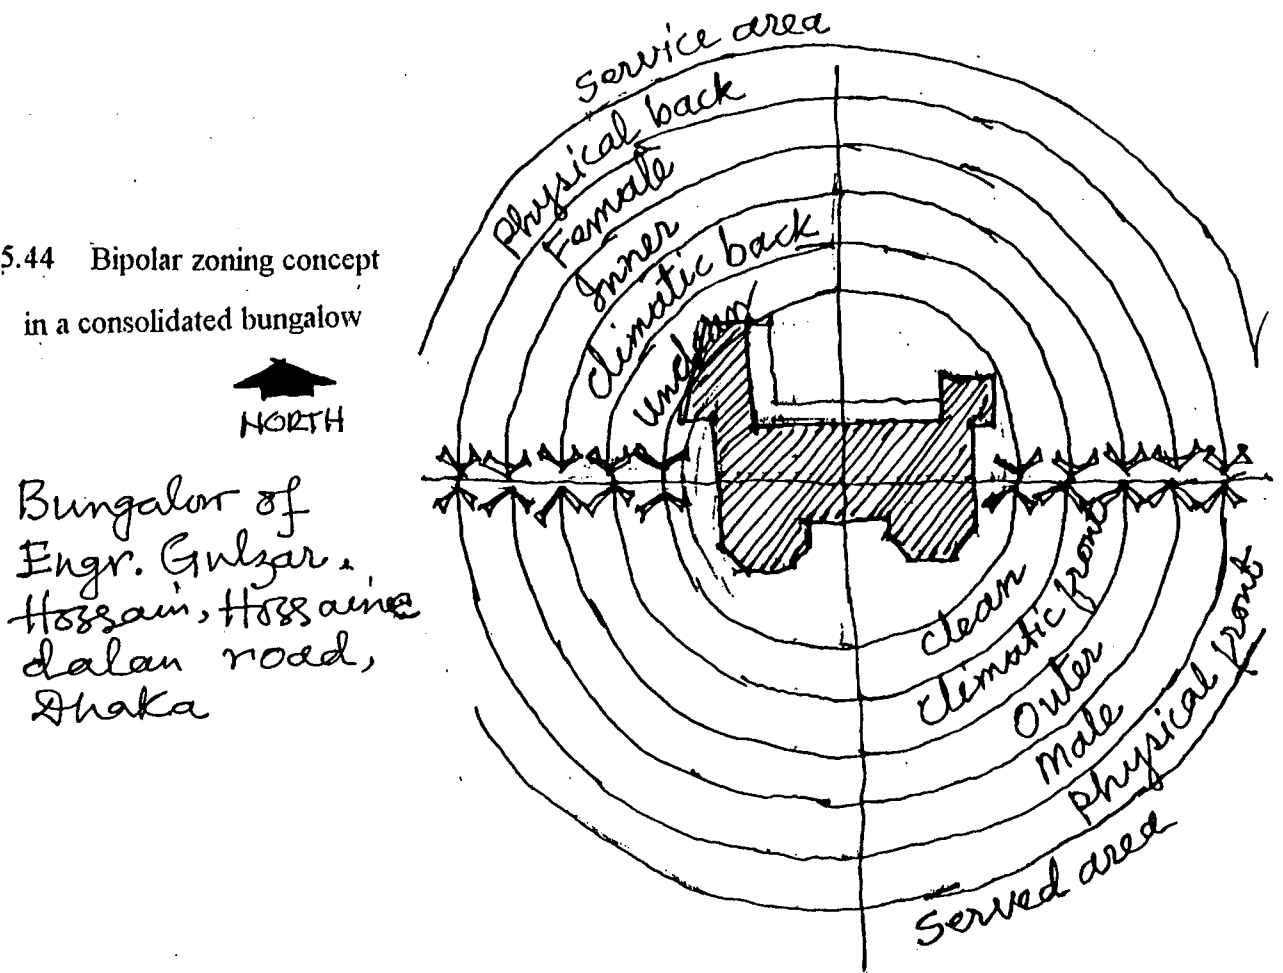 5.44 Bipolar zoning concept
in a consolidated bungalow
NORTH
Bungalow of
Engr. Gulzar
Hossain, Hossaine
dalan road,
Dhaka
Service area
Physical back
Female
Inner
climatic back
unclean
clean
climatic front
Outer
Male
Physical front
Served area